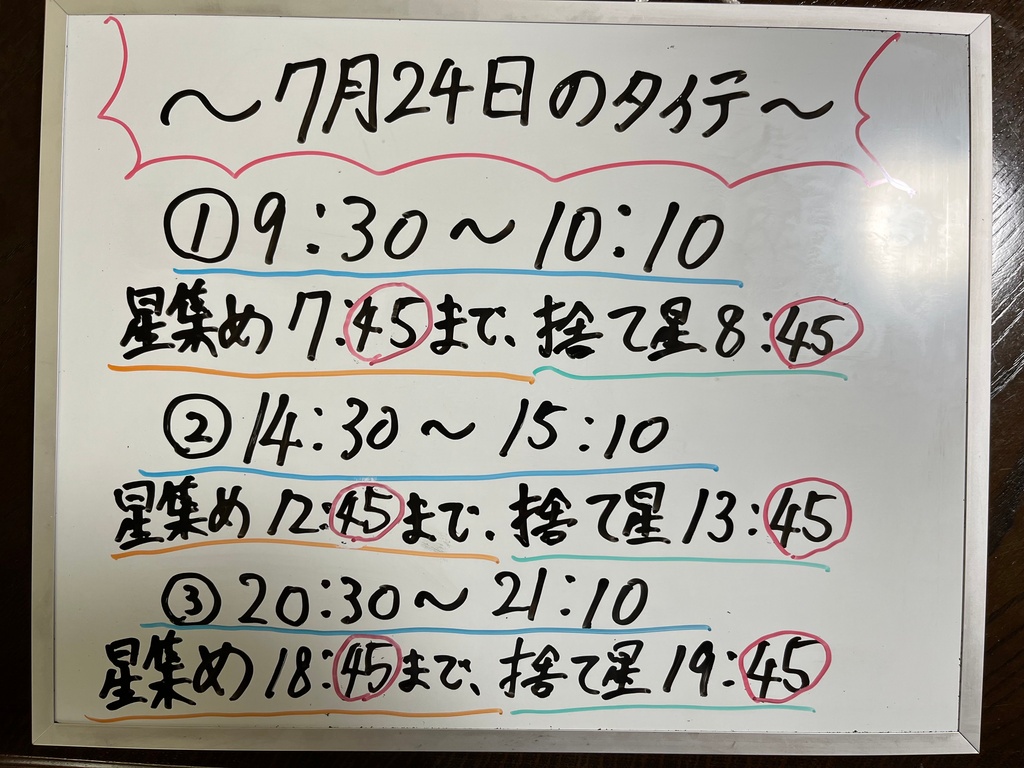 〜7月24日のタイテ〜
①9:30〜10:10
星集め7:45まで、捨て星8:45
②14:30〜15:10
星集め12:45まで、捨て星13:45
③20:30〜21:10
星集め18:45まで、捨て星19:45